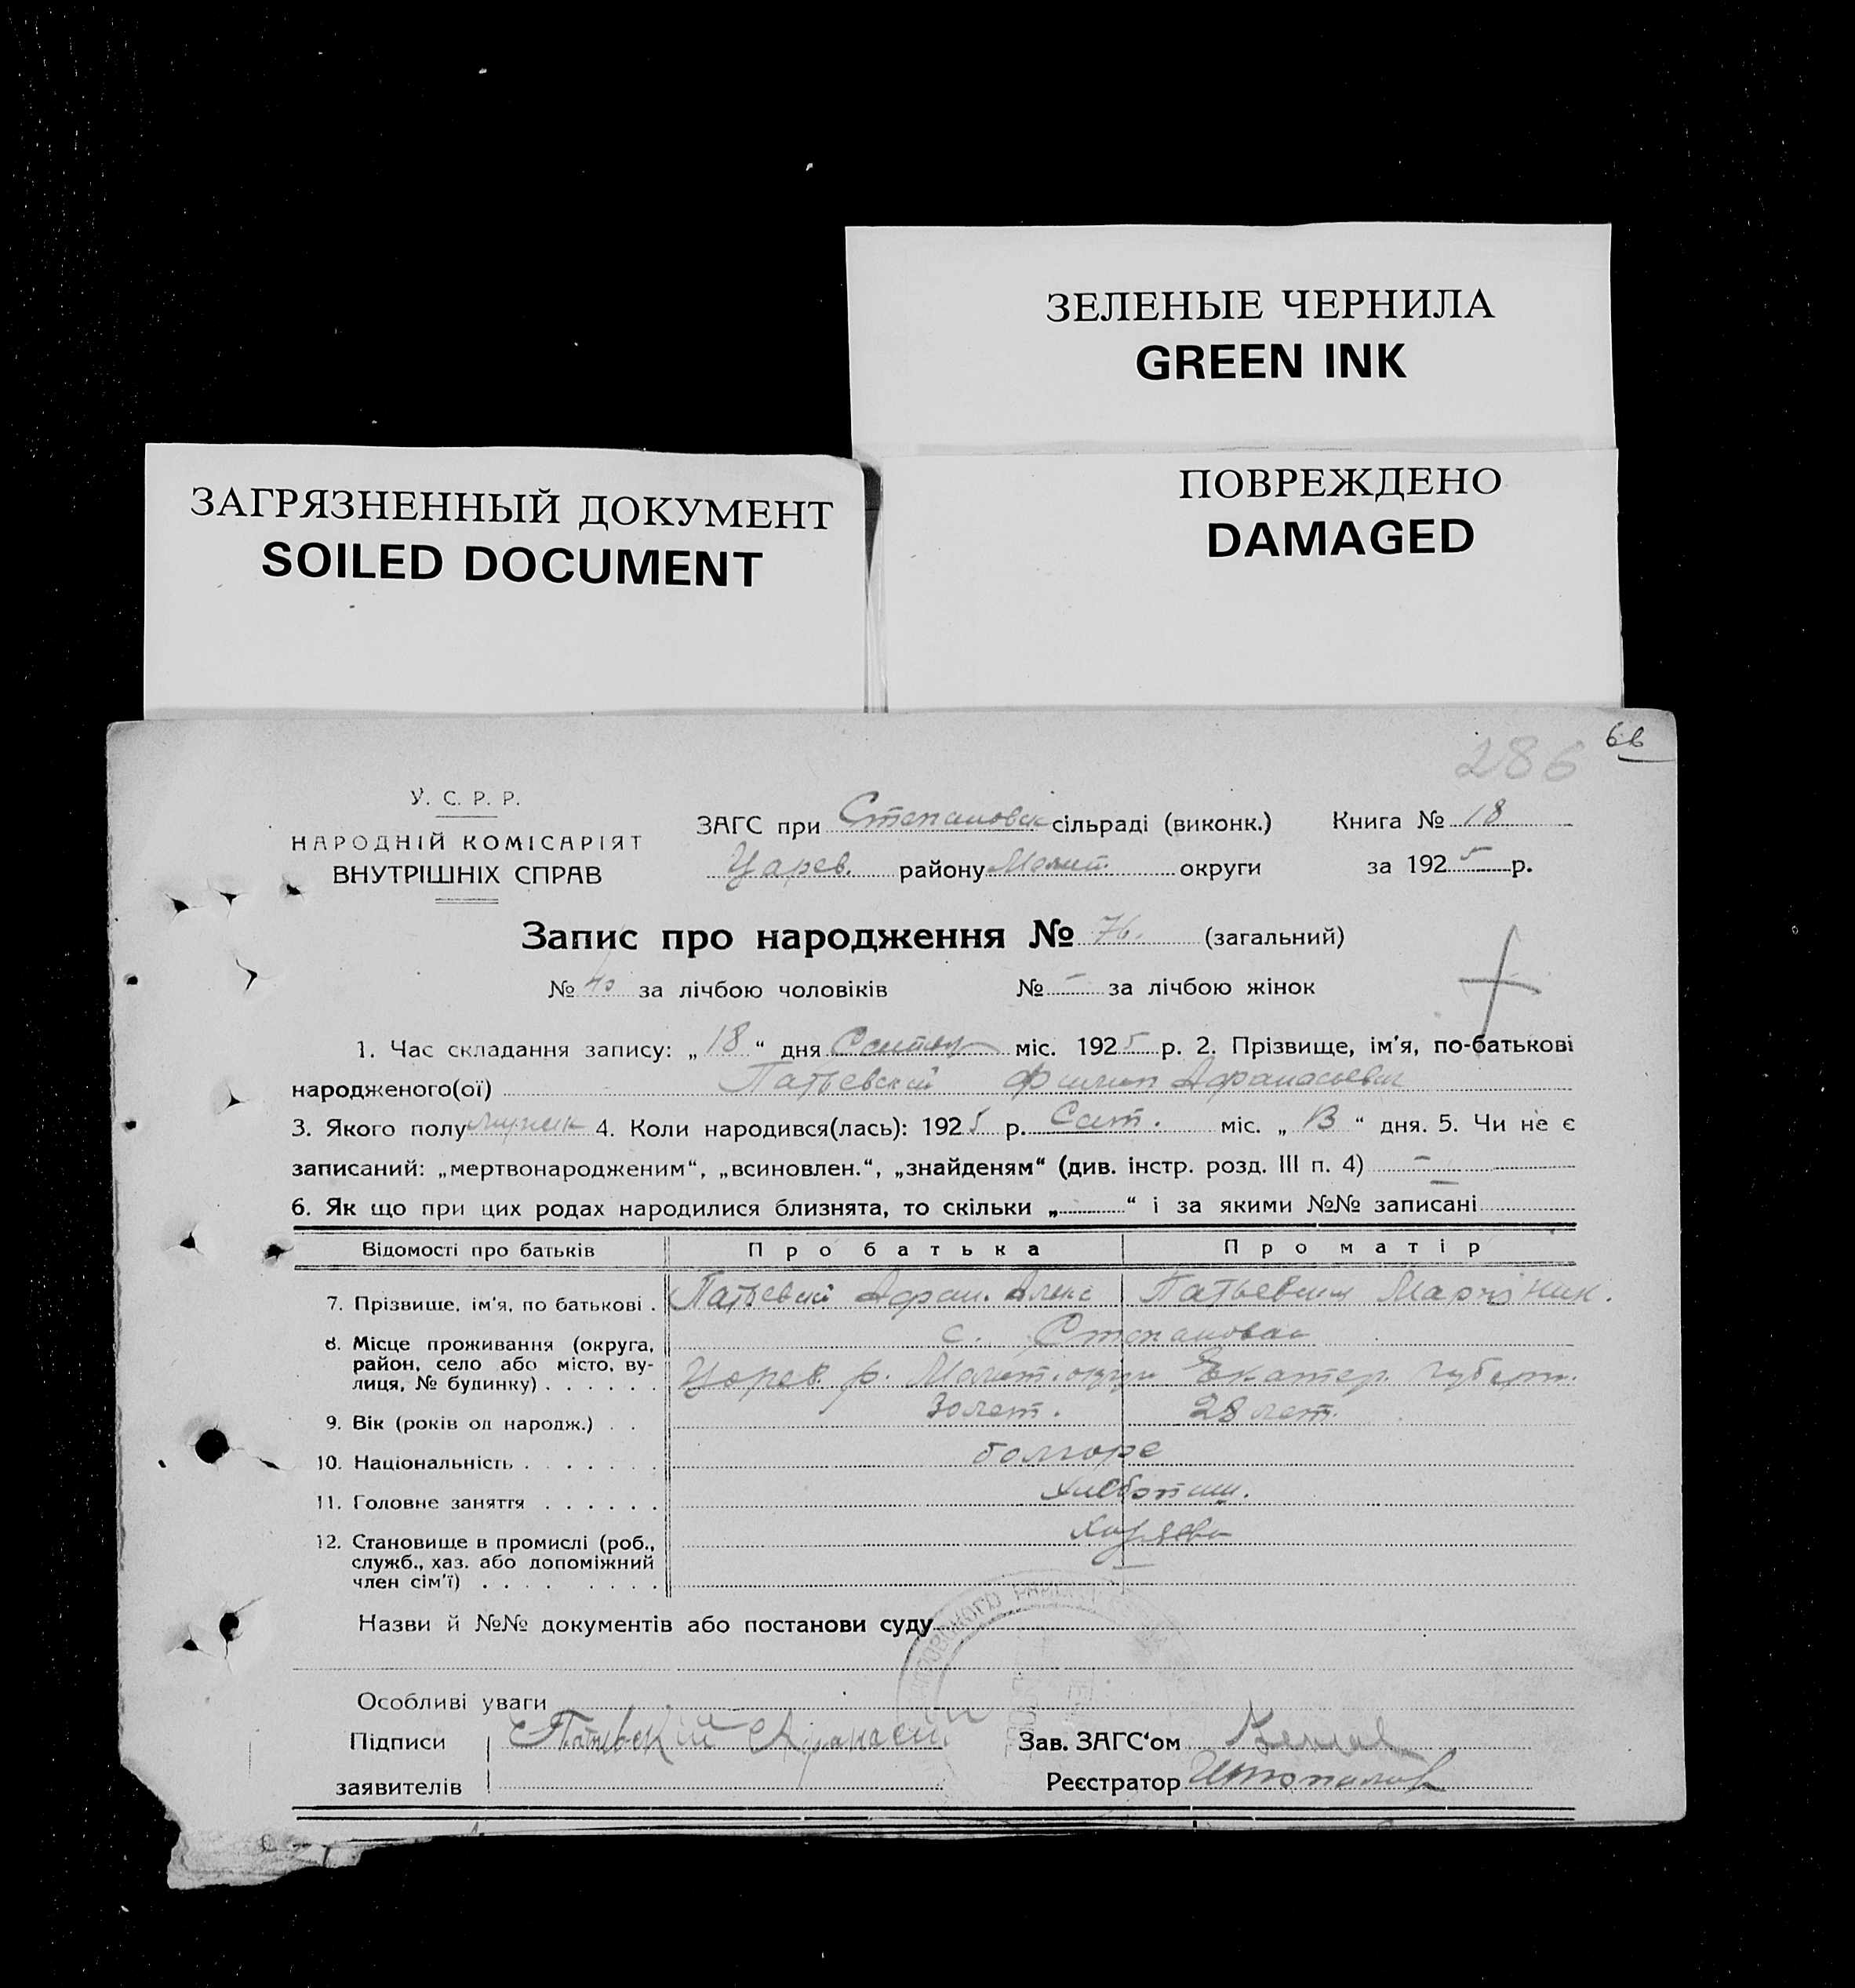 ЗЕЛЕНЫЕ ЧЕРНИЛА
GREEN INK
ЗАГРЯЗНЕННЫЙ ДОКУМЕНТ
SOILED DOCUMENT
ПОВРЕЖДЕНО
DAMAGED
286
У. С. Р. Р.
НАРОДНІЙ КОМІСАРІЯТ
ВНУТРІШНІХ СПРАВ
ЗАГС при Степановск сільраді (виконк.) Книга № 18
Царев. району Мелит. округи за 1925 р.
Запис про народження № 76. (загальний)
№ 40 за лічбою чоловіків № – за лічбою жінок
1. Час складання запису: „18“ дня міс. 1925 р. 2. Прізвище, ім'я, по-батькові
народженого(ої) Патьевский Филип Афанасьевич
3. Якого полу мужск 4. Коли народився(лась): 1925 р. Сент. міс. „13“ дня. 5. Чи не є
записаний: „мертвонародженим“, „всиновлен.“, „знайденям“ (див. інстр. розд. III п. 4) –
6. Як що при цих родах народилися близнята, то скільки „ “ і за якими №№ записані
Відомості про батьків Про батька Про матір
7. Прізвище, ім'я, по батькові . Патьевский Афан. Алекс Патьевская Мария Ник.
8. Місце проживання (округа, район, село або місто, вулиця, № будинку) . . . . . . с. Степановка
Царев. р. Мелит. округи Екатер. губерн.
9. Вік (років од народж.) . . 30 лет. 28 лет.
10. Національність . . . . . . . болгаре
11. Головне заняття . . . . . . хлебопаш.
12. Становище в промислі (роб., служб., хаз. або допоміжний член сім'ї) . . . . . . . . хозяева
Назви й №№ документів або постанови суду
Особливі уваги
Підписи Патьевский Афанасий Зав. ЗАГС'ом
заявителів Реєстратор